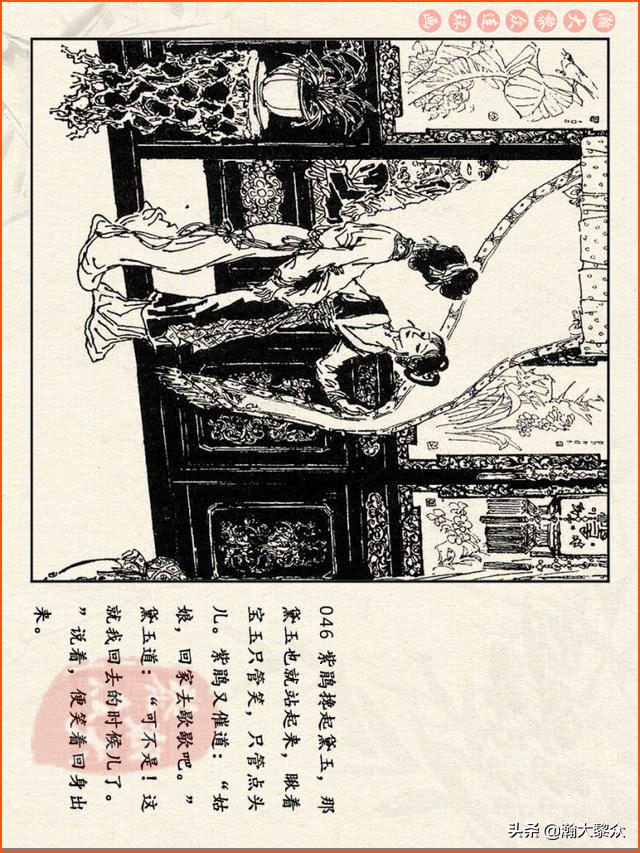 瀚大黎众连环画
046 紫鹃搀起黛玉，那
黛玉也就站起来，瞅着
宝玉只管笑，只管点头
儿。紫鹃又催道：“姑
娘，回家去歇歇吧。”
黛玉道：“可不是！这
就我回去的时候儿了。
”说着，便笑着回身出
来。
头条 @瀚大黎众